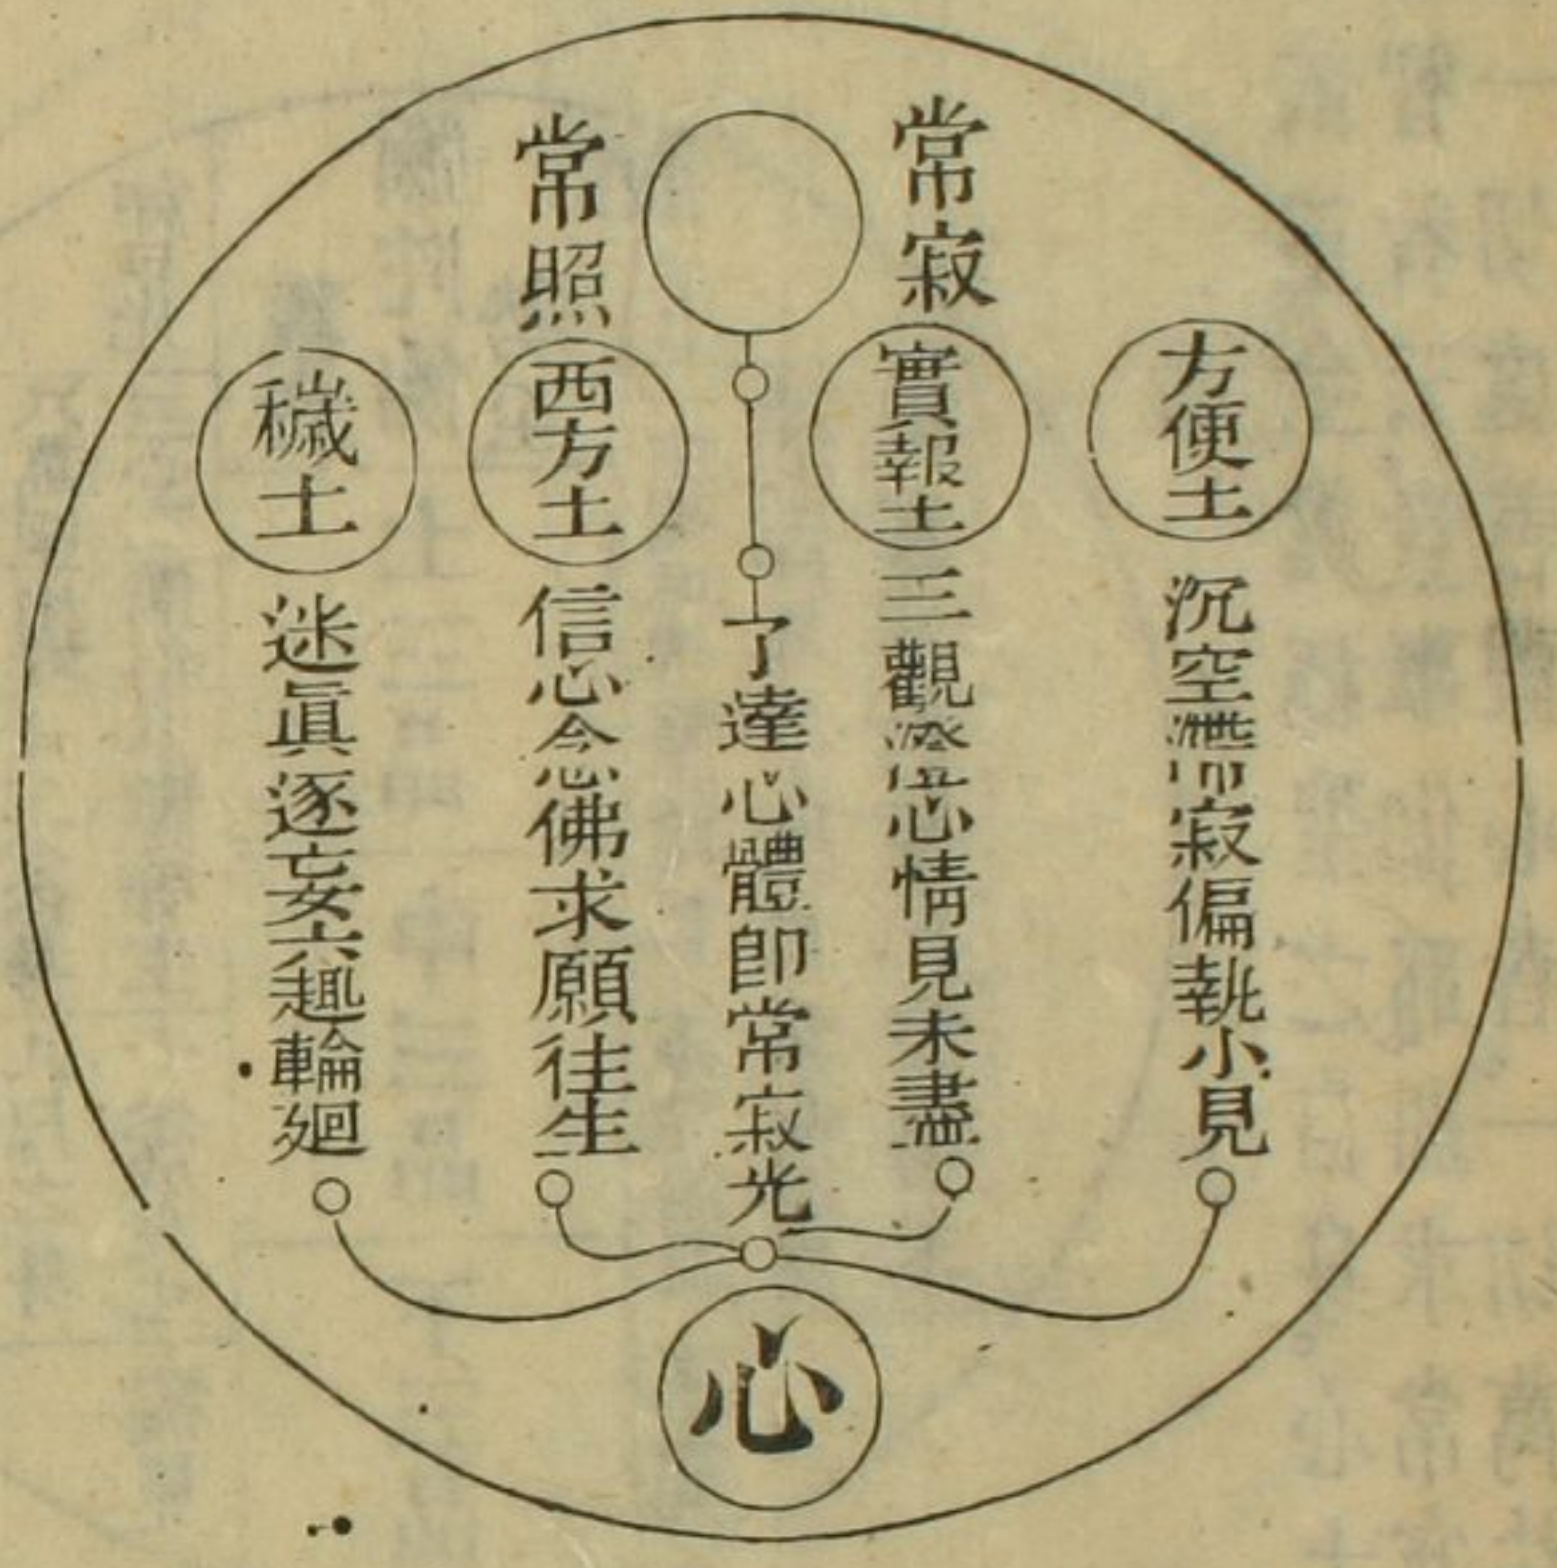 方便土
沉空滯寂偏執小見
常寂
實報土
三觀澄心情見未盡
了達心體即常寂光
常照
西方土
信心念佛求願往生
穢土
迷眞逐妄六趣輪廻
心